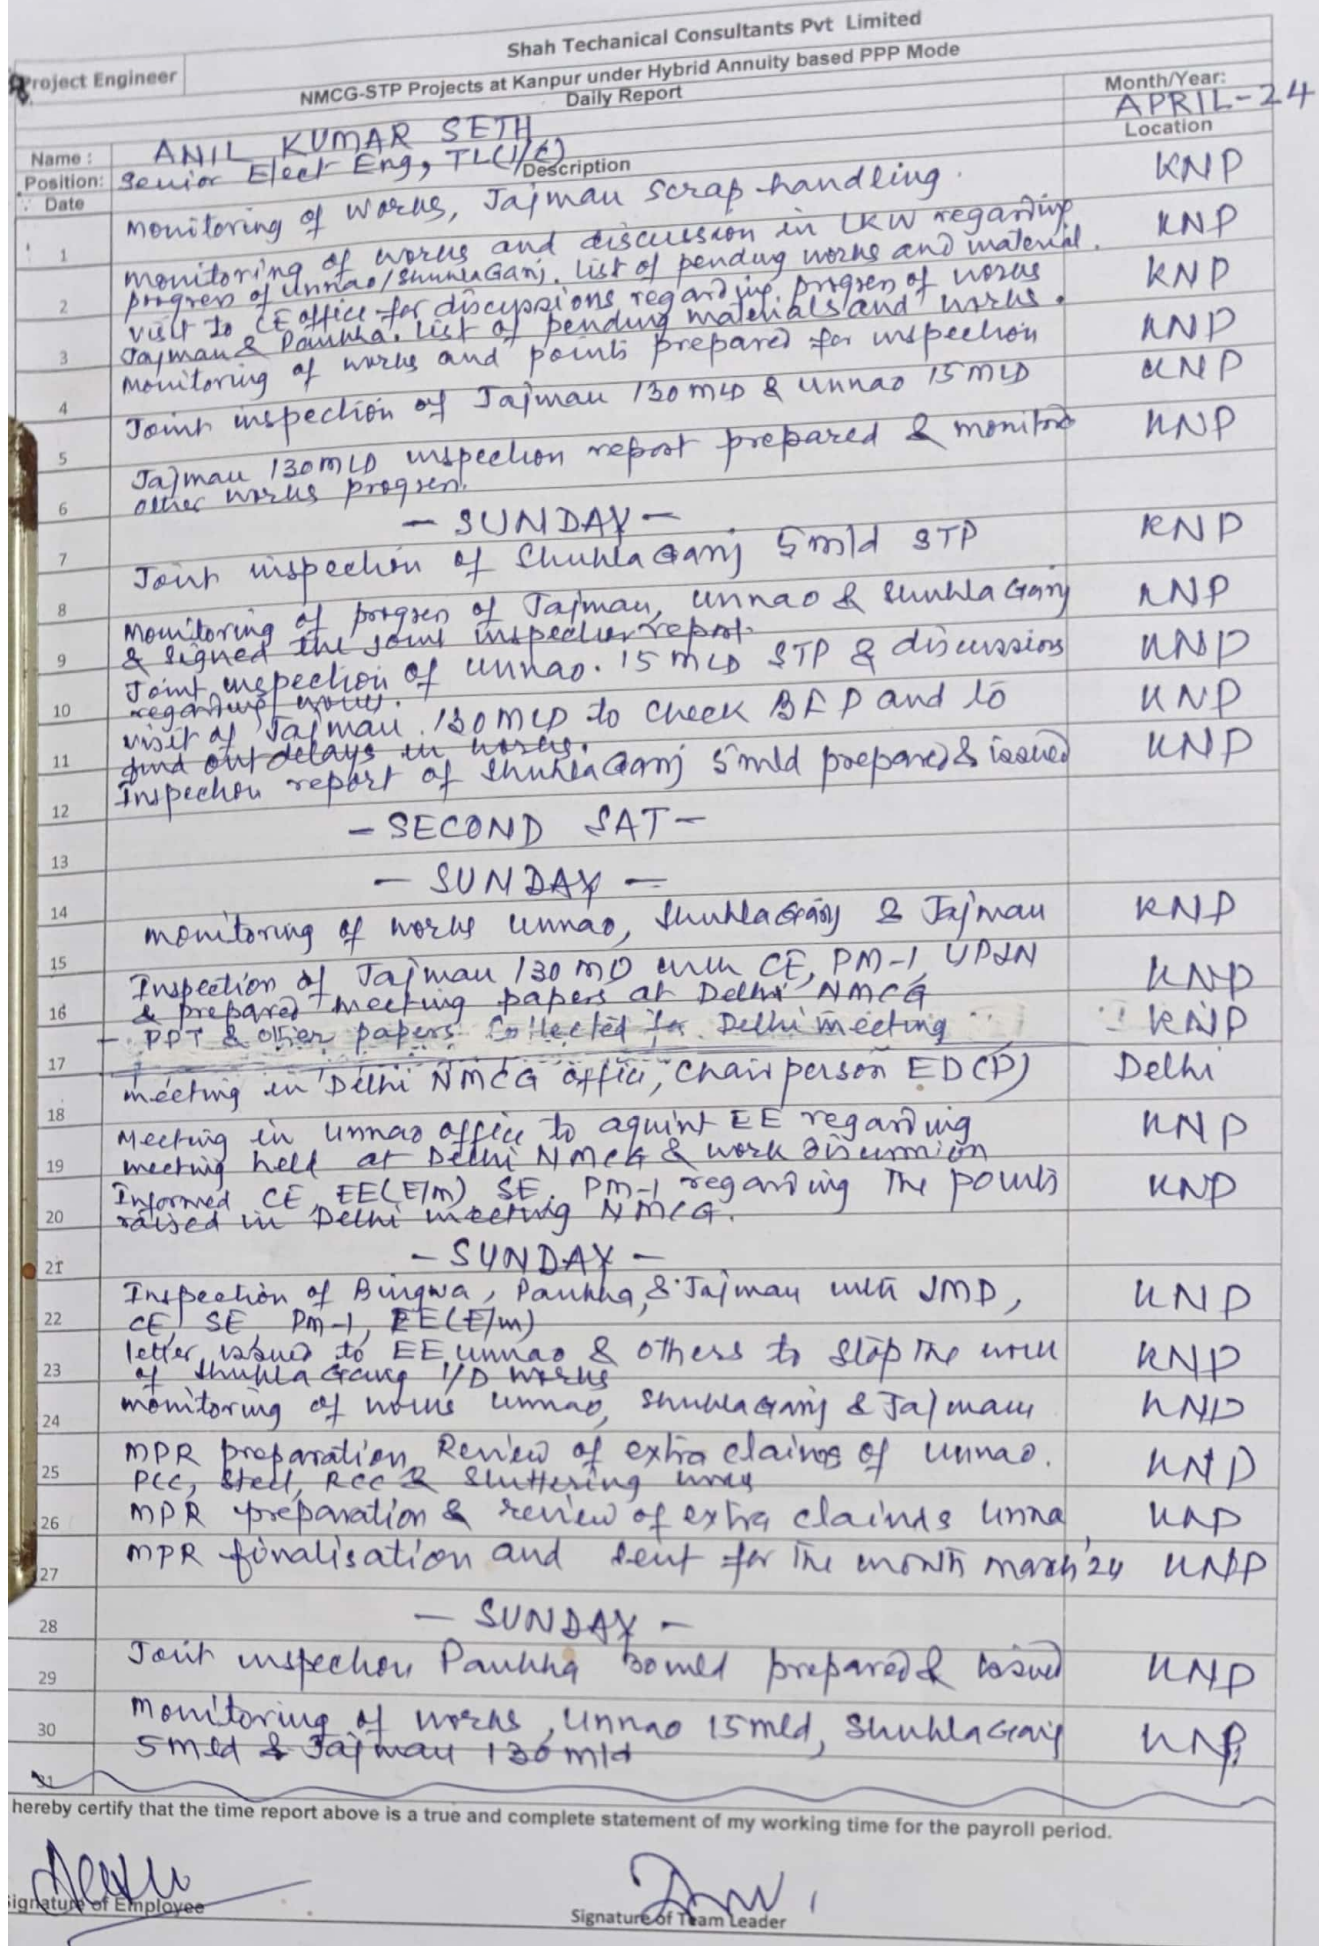 Shah Techanical Consultants Pvt Limited
Project Engineer
NMCG-STP Projects at Kanpur under Hybrid Annuity based PPP Mode
Daily Report
Month/Year:
APRIL-24
Name : ANIL KUMAR SETH
Location
Position: Senior Elect Eng, TL(I/C)
Date
Description
1 Monitoring of works, Jajmau Scrap handling. KNP
2 Monitoring of works and discussion in LKW regarding KNP
progress of Unnao/ShuklaGanj. List of pending works and material.
3 visit to CE office for discussions regarding progress of works KNP
Jajmau & Pankha. List of pending materials and works.
4 Monitoring of works and points prepared for inspection KNP
5 Joint inspection of Jajmau 130 MLD & Unnao 15 MLD KNP
6 Jajmau 130 MLD inspection report prepared & monitored KNP
other works progress.
7 - SUNDAY -
8 Joint inspection of ShuklaGanj 5 mld STP KNP
9 Monitoring of progress of Jajmau, Unnao & ShuklaGanj KNP
& signed the joint inspection report.
10 Joint inspection of Unnao. 15 MLD STP & discussions KNP
regarding works.
11 visit of Jajmau. 130 MLD to check BFP and to KNP
find out delays in works.
12 Inspection report of ShuklaGanj 5 mld prepared & issued KNP
13 - SECOND SAT -
14 - SUNDAY -
15 monitoring of works Unnao, ShuklaGanj & Jajmau KNP
16 Inspection of Jajmau 130 MD with CE, PM-1, UPJN KNP
& prepared meeting papers at Delhi NMCG
17 - PPT & other papers collected for Delhi meeting KNP
18 meeting in Delhi NMCG office, Chairperson ED(P) Delhi
19 Meeting in Unnao office to aquint EE regarding KNP
meeting held at Delhi NMCG & work discussion
20 Informed CE, EE(E/M) SE, PM-1 regarding The points KNP
raised in Delhi meeting NMCG.
21 - SUNDAY -
22 Inspection of Bingwa, Pankha, & Jajmau with JMD, KNP
CE, SE, PM-1, EE(E/m)
23 letter issued to EE Unnao & others to stop the work KNP
of ShuklaGang I/D works
24 monitoring of works Unnao, ShuklaGanj & Jajmau KNP
25 MPR preparation, Review of extra claims of Unnao. KNP
PCC, Steel, RCC & Shuttering works
26 MPR preparation & review of extra claims Unna KNP
27 MPR finalisation and sent for the month march'24 KNP
28 - SUNDAY -
29 Joint inspection Pankha 30 mld prepared & issued KNP
30 Monitoring of works, Unnao 15 mld, ShuklaGanj KNP
5 mld & Jajmau 130 mld
31
hereby certify that the time report above is a true and complete statement of my working time for the payroll period.
Signature of Employee
Signature of Team Leader